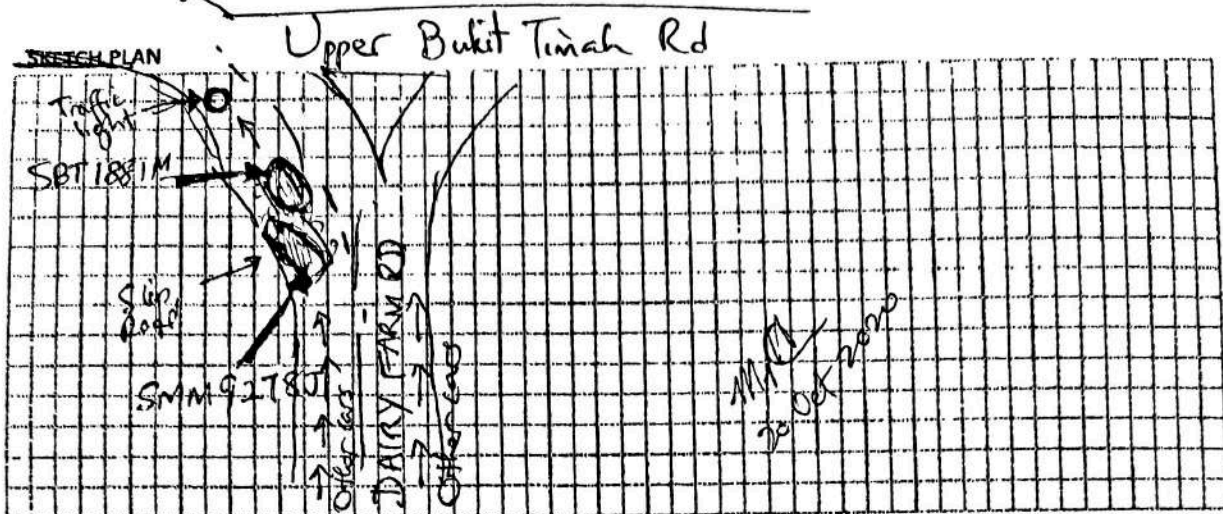 Upper Bukit Timah Rd
SKETCH PLAN
Traffic
light
SBT1881M
Slip
Road
SMM9278J
Other cars
DAIRY FARM RD
Other cars
20 Oct 2020